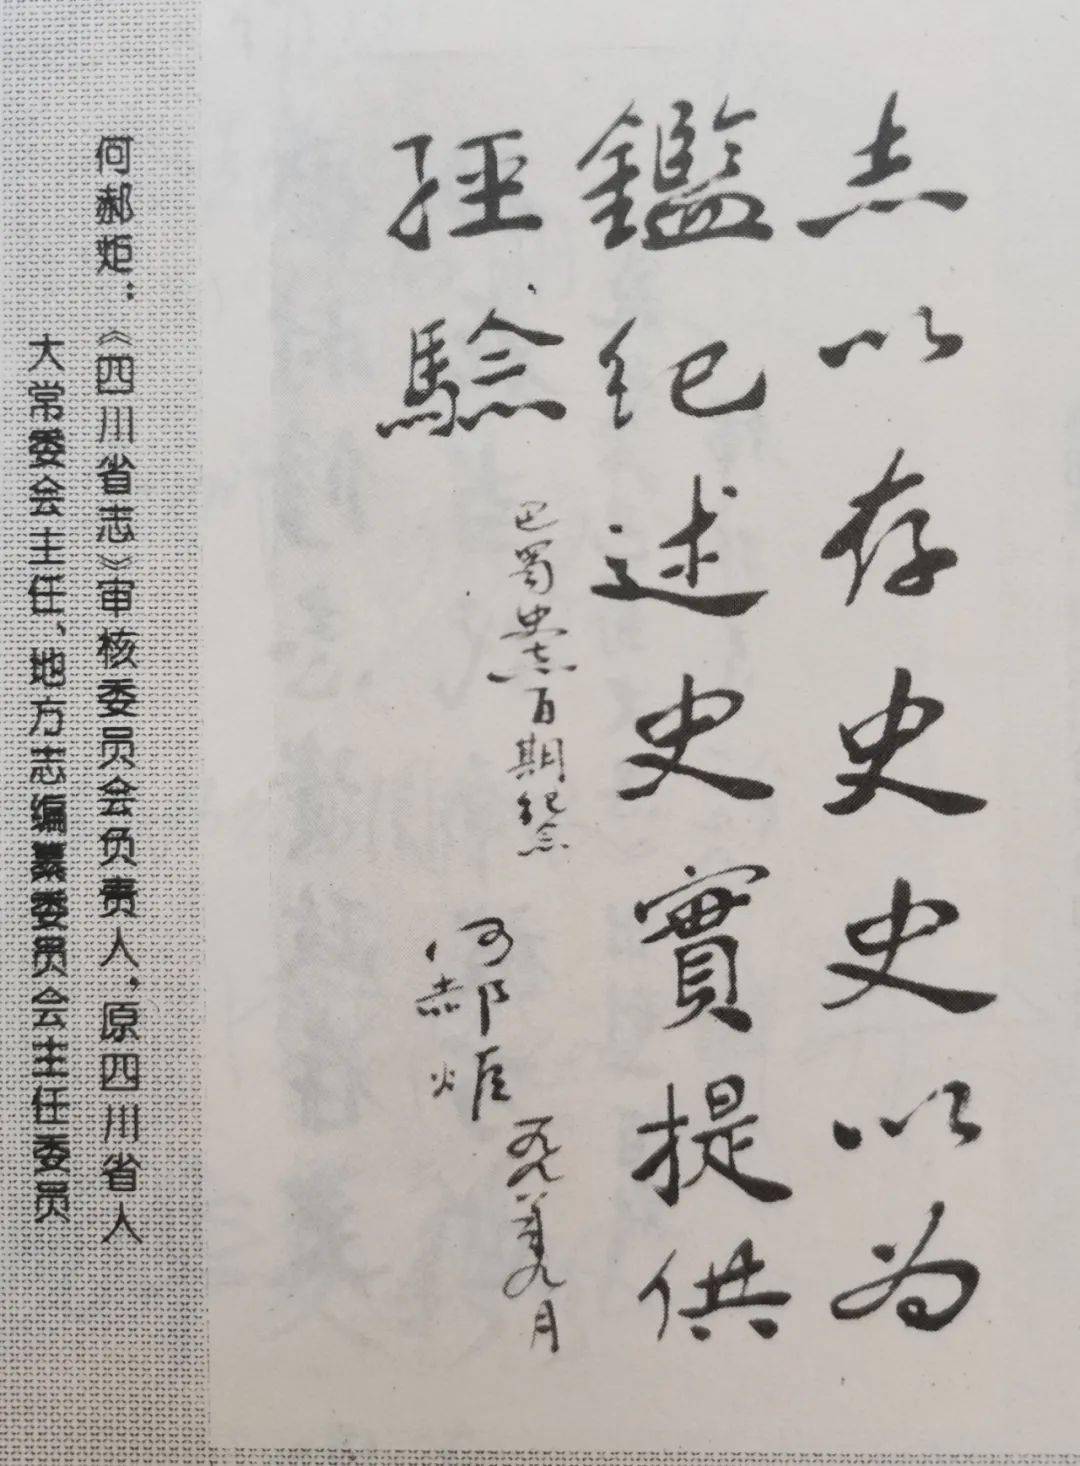 志以存史史以为
鑑紀述史實提供
經驗
巴蜀史志百期纪念
何郝炬
九月
何郝炬：《四川省志》审核委员会负责人，原四川省人
大常委会主任、地方志编纂委员会主任委员